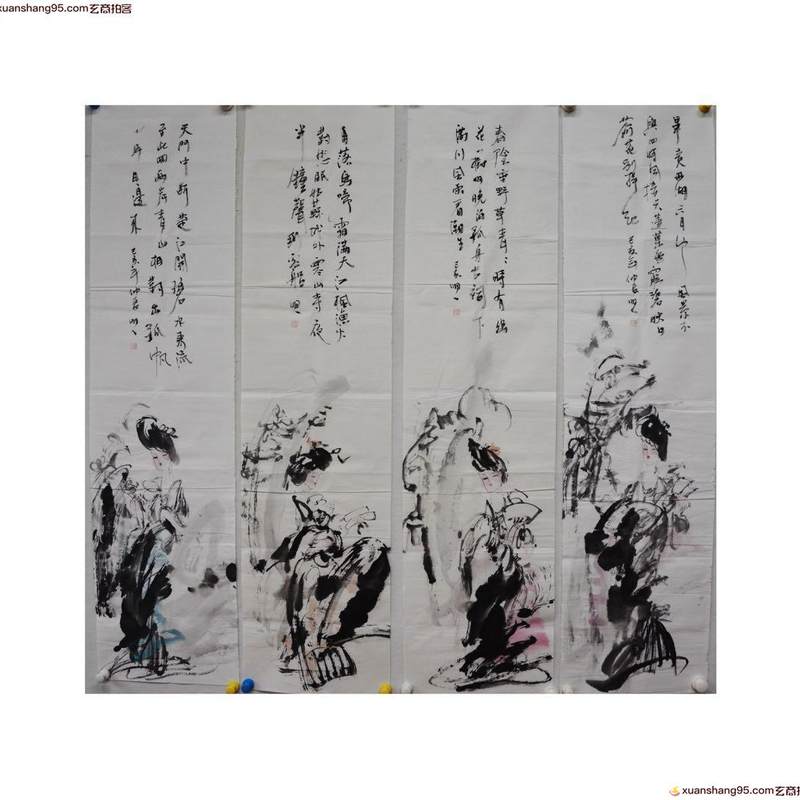 xuanshang95.com玄商拍客
畢竟西湖六月中風景不
與四時同接天蓮葉無窮碧映日
荷花別樣紅 己亥年仲春
春陰垂野草青〻時有幽
花一樹明晚泊孤舟古祠下
滿川風雨看潮生
月落烏啼霜滿天江楓漁火
對愁眠姑蘇城外寒山寺夜
半鐘聲到客船
天門中斷楚江開碧水東流
至此回兩岸青山相對出孤帆
一片日邊來 己亥年仲春
xuanshang95.com玄商拍客